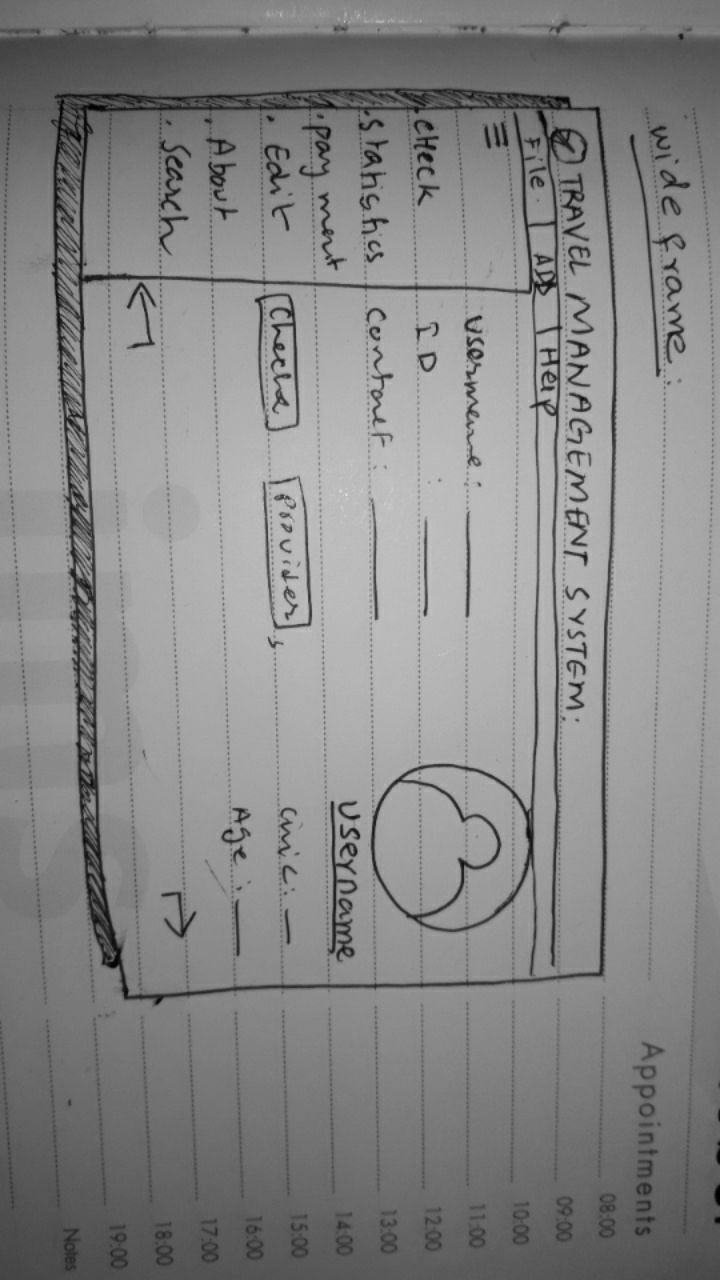 wide frame:
TRAVEL MANAGEMENT SYSTEM:
File. | ADD | Help
. Check
. Statistics
. payment
. Edit
. About
. Search
username:
ID :
Contact:
Provider
username
Cinic:
Age:
Appointments
08:00
09:00
10:00
11:00
12:00
13:00
14:00
15:00
16:00
17:00
18.00
19:00
Notes